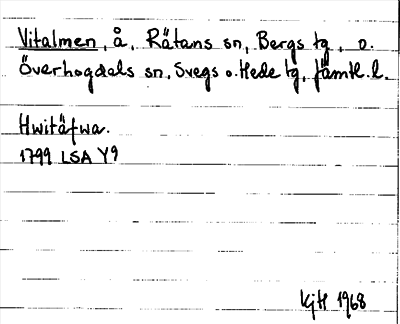 Vitalmen, å, Rätans sn, Bergs tg, o.
Överhogdals sn, Svegs o. Hede tg, Jämtl. l.
Hwitäfwa.
1799 LSA Y9
KgH 1968